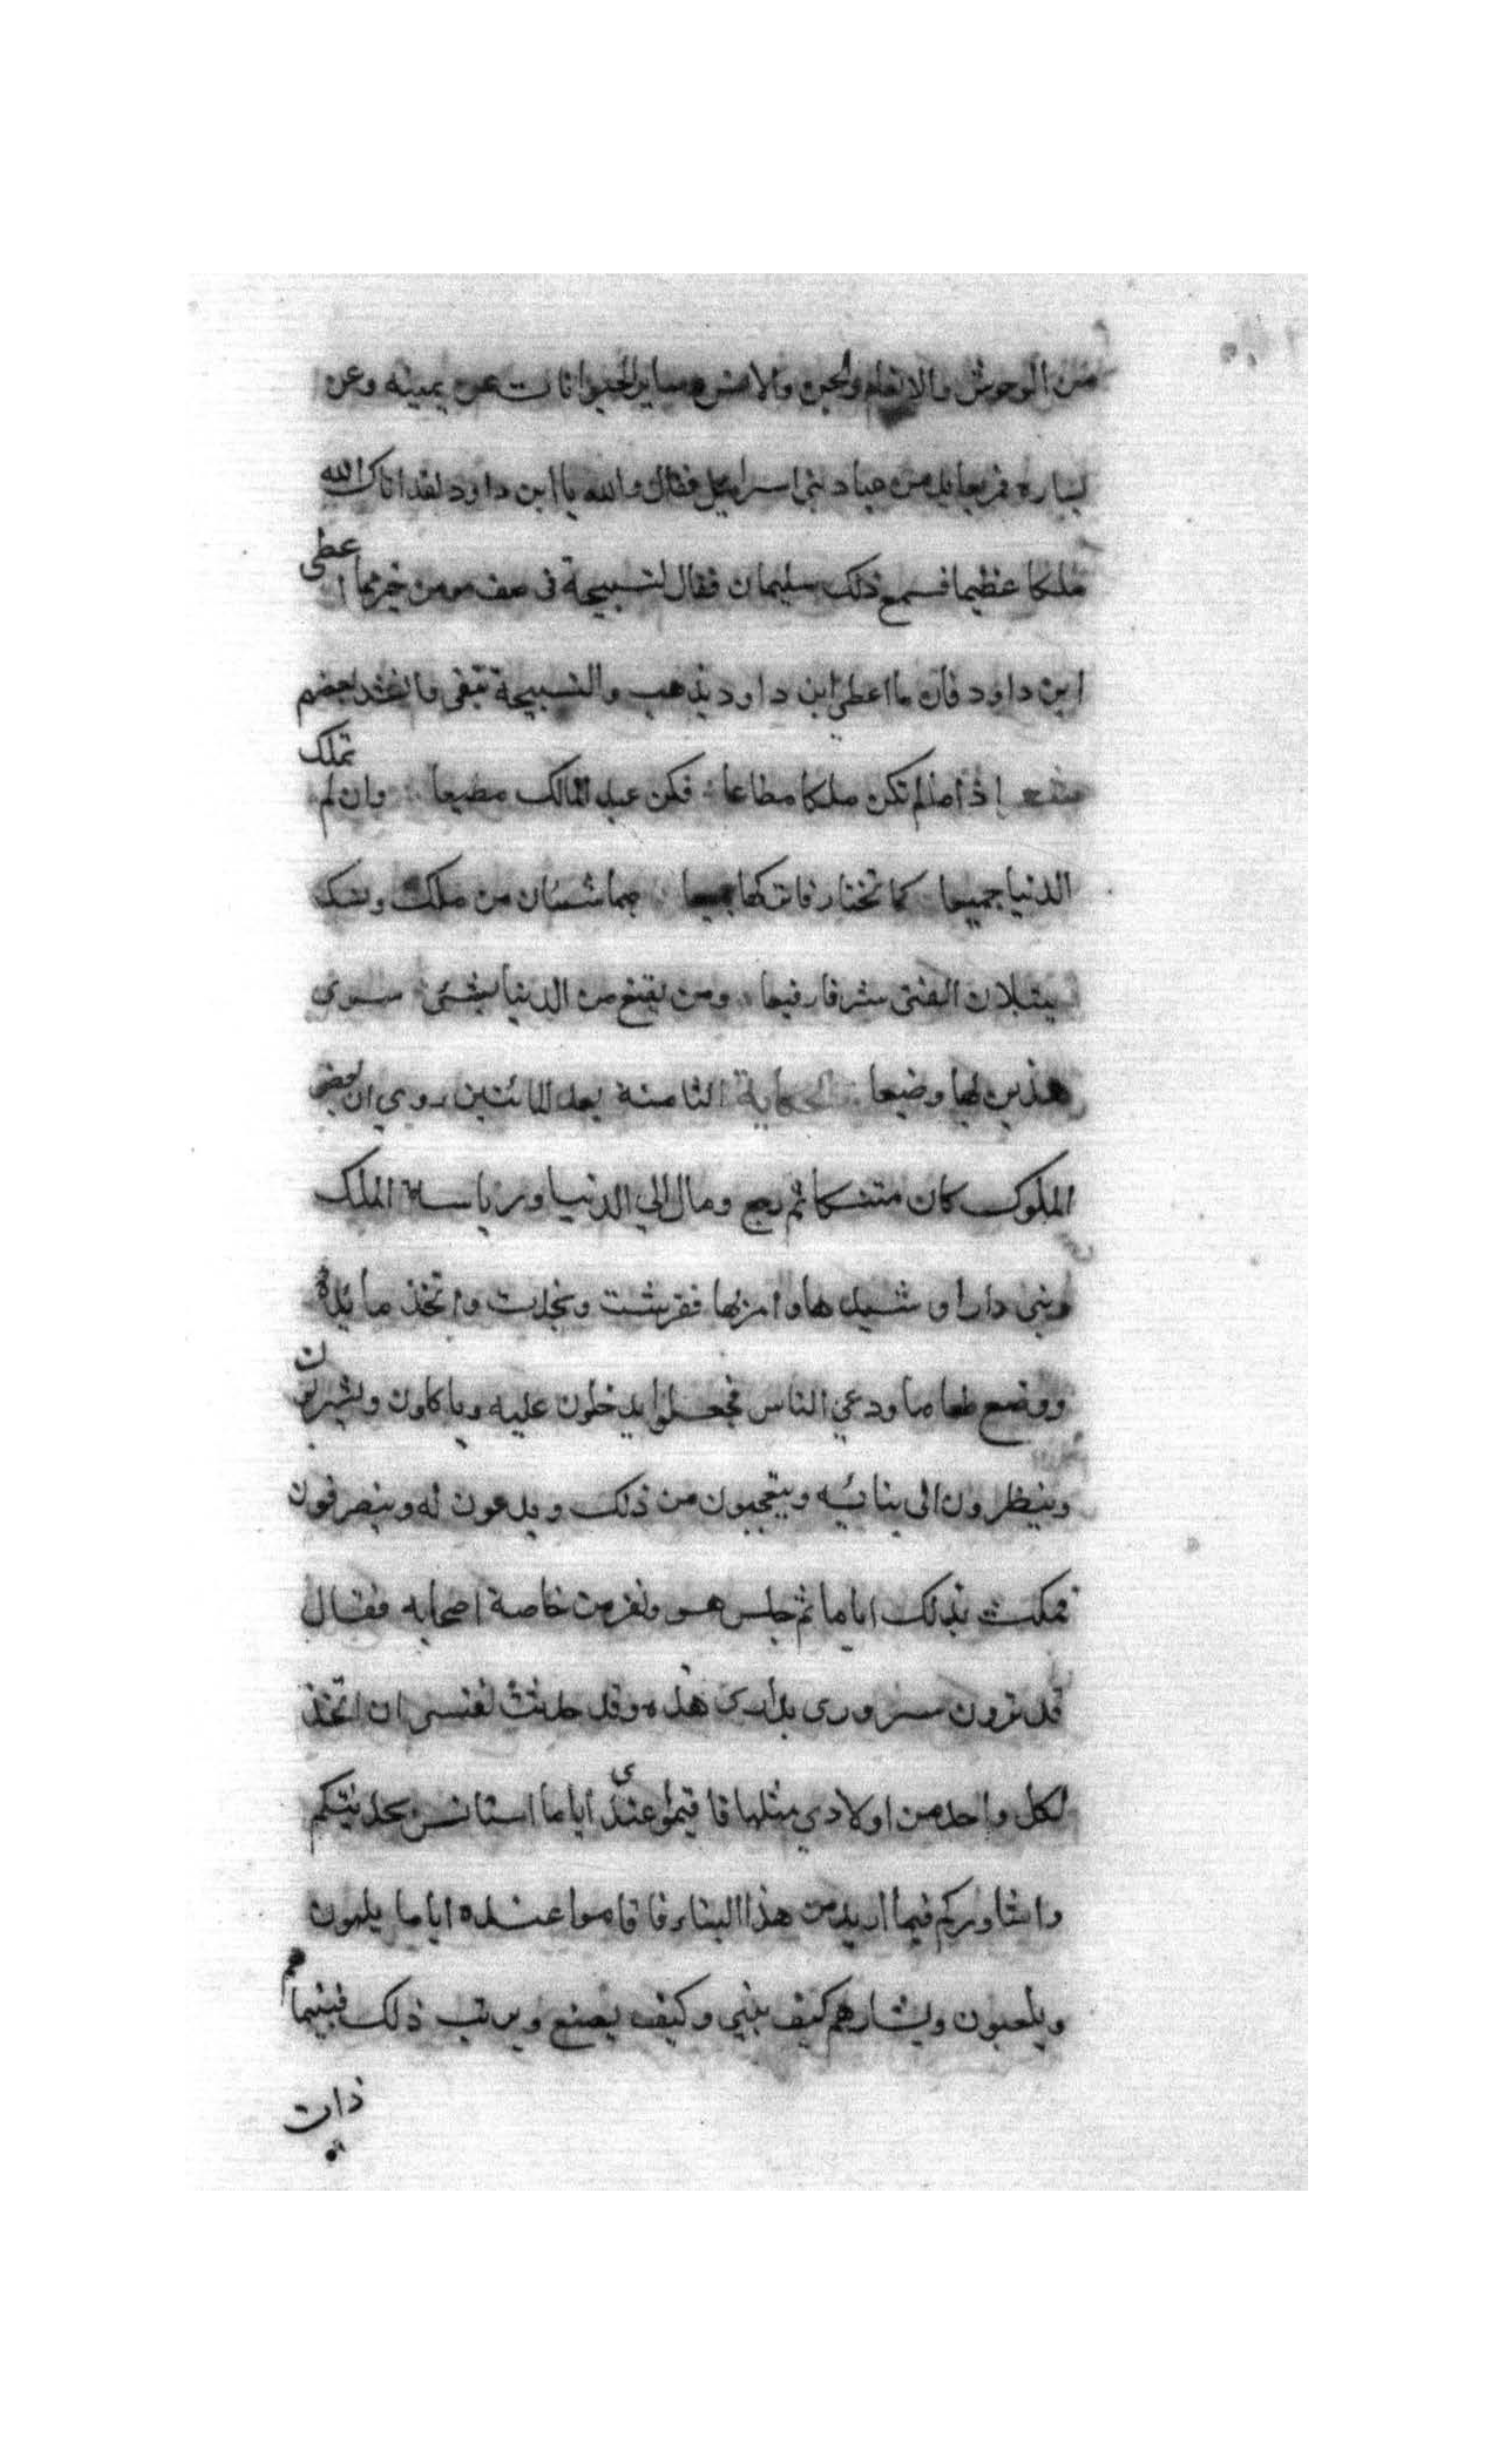 من الوحوش والانعام والجن والانس وساير الحيوانات عن يمينه وعن
يساره فمر بعابد من عباد بنى اسرائيل فقال والله يا ابن داود لقد اتاك الله
ملكا عظيما فسمع ذلك سليمان فقال لتسبيحة فى صحف مومن خير مما اعطى
ابن داود فان ما اعطي ابن داود يذهب والتسبيحة تبقى وانشد بعضهم
شعر إذا ما لم تكن ملكا مطاعا فكن عبد المالك مطيعا وان لم تملك
الدنيا جميعا كما تختار فاتركها جميعا هما شيئان من ملك ونسك
ينيلان الفتى شرفا رفيعا ومن يقنع من الدنيا بشئ سوى
هذين لها وضيعا الحكاية الثامنة بعد المائتين روي ان بعض
الملوك كان متنسكا ثم رجع ومال الي الدنيا ورياسة الملك
وبنى دارا وشيدها وامر بها ففرشت ونجدت واتخذ مائدة
ووضع طعاما ودعي الناس فجعلوا يدخلون عليه وياكلون ويشربون
وينظرون الى بنائيه ويتعجبون من ذلك ويدعون له وينصرفون
فمكث بذلك اياما ثم جلس هو ونفر من خاصة اصحابه فقال
قد ترون سروري بداري هذه وقد حدثت نفسى ان اتخذ
لكل واحد من اولادي مثلها فاقيموا عندى اياما استانس بحديثكم
واشاوركم فيما اريد من هذا البناء فاقاموا عنده اياما يلهون
ويلعبون ويشارهم كيف يبني وكيف يصنع ويرتب ذلك فبينما هم
ذات